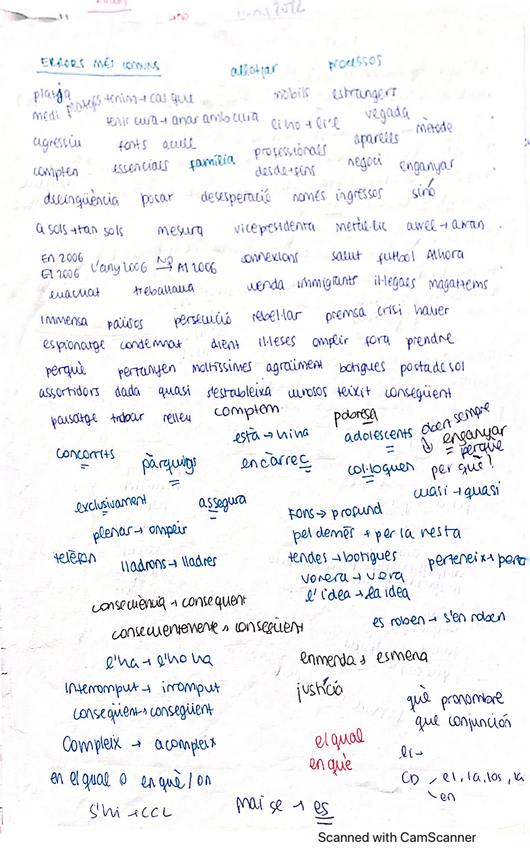 ERRORS MÉS COMUNS allotjar processos
platja mòbils estrangers
medi platges tenim → cal que vegada
tenir cura → anar amb cura
agressiu fonts aparells mètode
compten essencials família professionals negoci enganyar
desde → fins
delinqüència posar desesperació només ingressos sinó
a sols → tan sols mesura vicepresidenta metàl·lic
En 2006 connexions salut futbol Alhora
El 2006 L'any 2006 → Al 2006
evacuat treballava venda immigrants il·legals magatzems
immensa països persecució rebel·lar premsa crisi haver
espionatge condemnat dient il·leses omplir fora prendre
perquè pertanyen moltíssimes agraïment botigues posta de sol
assortidors dada quasi s'establirà curosos teixit conseqüent
paisatge trobar relleu comptem pobresa
està → hi ha adolescents sempre
concorreguts enganyar
pàrquings encàrrec col·loquen perquè
per què!
quasi
exclusivament assegura
Fons → profund
plenar → omplir pel demés → per la resta
telèfon lladrons → lladres tendes → botigues
vorera → vora
l'idea → la idea
consequent es roben → s'en roben
l'ha → l'ho ha enmenda → esmena
Interromput → irromput justícia
què pronombre
conseqüent → consegüent que conjunción
Compleix → acompleix el qual
en què
en el qual o en què / on CD el, la, los, la
en
S'hi → CCL mai se → es
Scanned with CamScanner